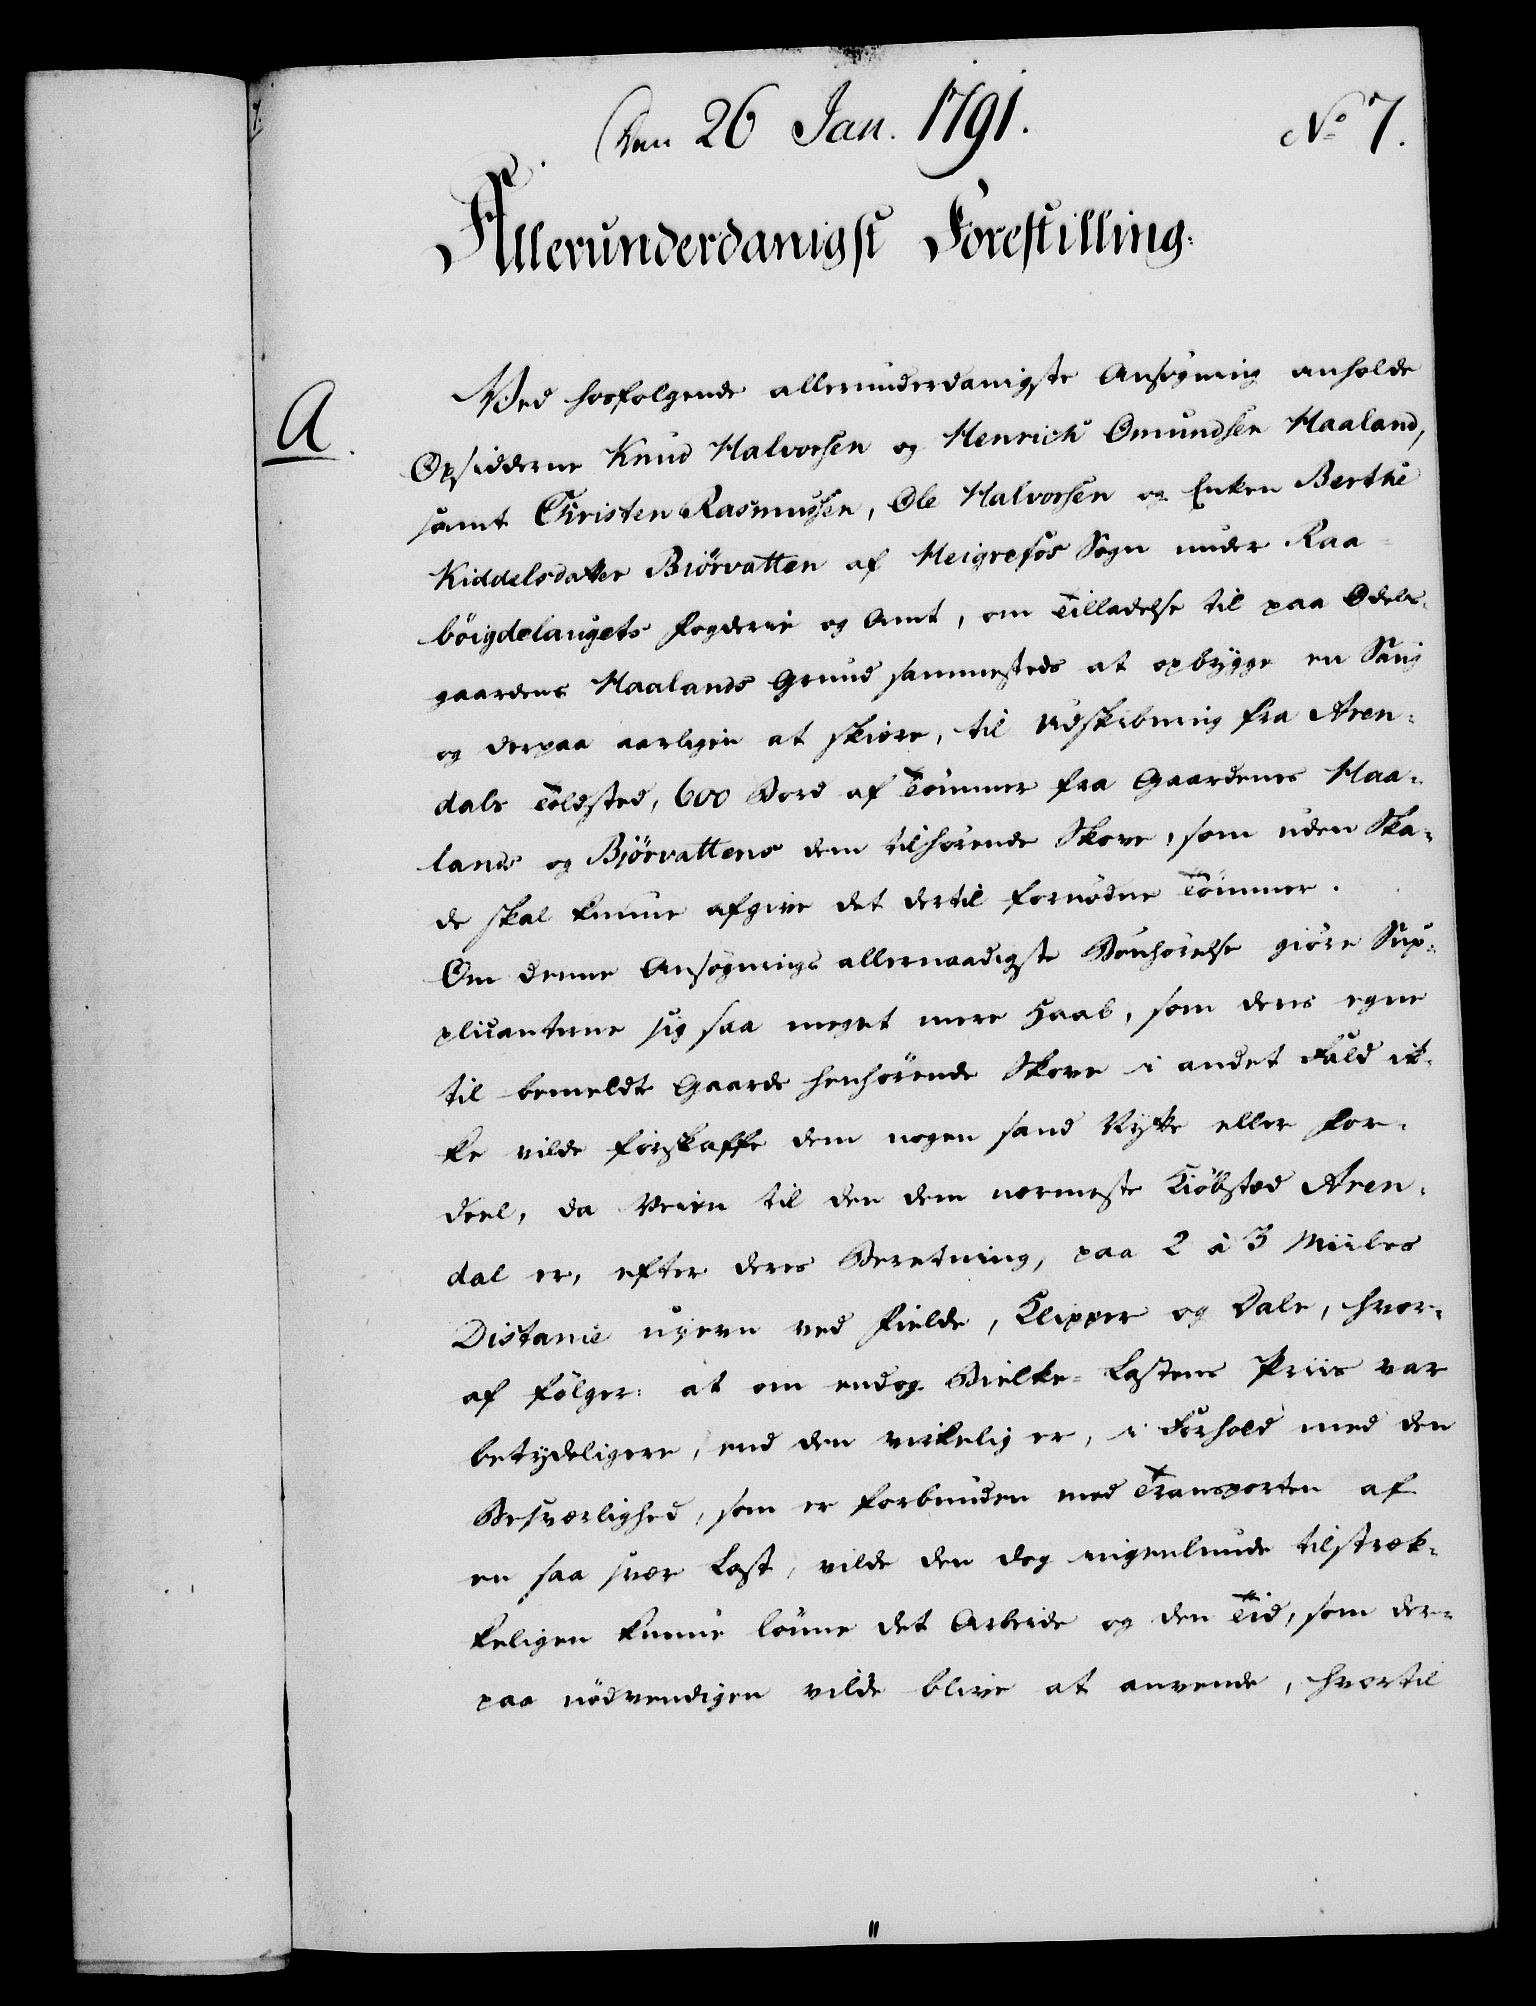 7.
Den 26 Jan. 1791.
No 7.
Allerunderdanigst Forestilling.
A.
Ved hosfølgende allerunderdanigste Ansøgning anholde
Opsidderne Knud Halvorsen og Henrich Omundsen Haaland,
samt Christen Rasmussen, Ole Halvorsen og Enken Berthe
Kiddelsdatter Biörvatten af Heigrefos Sogn under Raa-
böigdelaugets Fogderie og Amt, om Tilladelse til paa Odels-
gaardens Haalands Grund sammesteds at opbygge en Saug
og derpaa aarligen at skiære, til Udskibning fra Aren-
dals Toldsted, 600 Bord af Tömmer fra Gaardenes Haa-
lands og Björvattens dem tilhørende Skove, som uden Ska-
de skal kunne afgive det dertil fornödne Tömmer.
Om denne Ansøgnings allernaadigste Bönhörelse giöre Sup-
plicanterne sig saa meget mere Haab, som deres egne
til bemeldte Gaarde henhörende Skove i andet Fald ik-
ke vilde forskaffe dem nogen sand Nytte eller For-
deel, da Veien til den dem nermeste Kiöbsted Aren-
dal er, efter deres Beretning, paa 2 à 3 Miiles
Distance ujevn ved Fielde, Klipper og Dale, hvor-
af fölger: at om endog Bielke-Lastens Priis var
betydeligere, end den virkelig er, i Forhold med den
Besværlighed, som er forbunden med Transporten af
en saa svær Last, vilde den dog ingenlunde tilstræk-
keligen kunne lönne det Arbeide og den Tid, som der-
paa nödvendigen vilde blive at anvende, hvortil